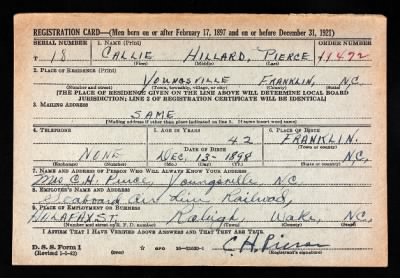 REGISTRATION CARD—(Men born on or after February 17, 1897 and on or before December 31, 1921)
SERIAL NUMBER 1. NAME (Print) ORDER NUMBER
T 18 CALLIE HILLARD, PIERCE 11492
(First) (Middle) (Last)
2. PLACE OF RESIDENCE (Print)
YOUNGSVILLE FRANKLIN, N.C.
(Number and street) (Town, township, village, or city) (County) (State)
[THE PLACE OF RESIDENCE GIVEN ON THE LINE ABOVE WILL DETERMINE LOCAL BOARD
JURISDICTION; LINE 2 OF REGISTRATION CERTIFICATE WILL BE IDENTICAL]
3. MAILING ADDRESS
SAME
[Mailing address if other than place indicated on line 2. If same insert word same]
4. TELEPHONE 5. AGE IN YEARS 6. PLACE OF BIRTH
42 FRANKLIN.
DATE OF BIRTH (Town or county)
NONE DEC, 13-1898 N.C,
(Exchange) (Number) (Mo.) (Day) (Yr.) (State or country)
7. NAME AND ADDRESS OF PERSON WHO WILL ALWAYS KNOW YOUR ADDRESS
Mrs C.H. Pierce, Youngsville, N.C.
8. EMPLOYER'S NAME AND ADDRESS
Seaboard Air Line Railroad,
9. PLACE OF EMPLOYMENT OR BUSINESS
Raleigh, Wake, N.C,
(Number and street or R. F. D. number) (Town) (County) (State)
I AFFIRM THAT I HAVE VERIFIED ABOVE ANSWERS AND THAT THEY ARE TRUE.
D. S. S. Form 1
(Revised 1-1-42) GPO C H Pierce
(Registrant's signature)